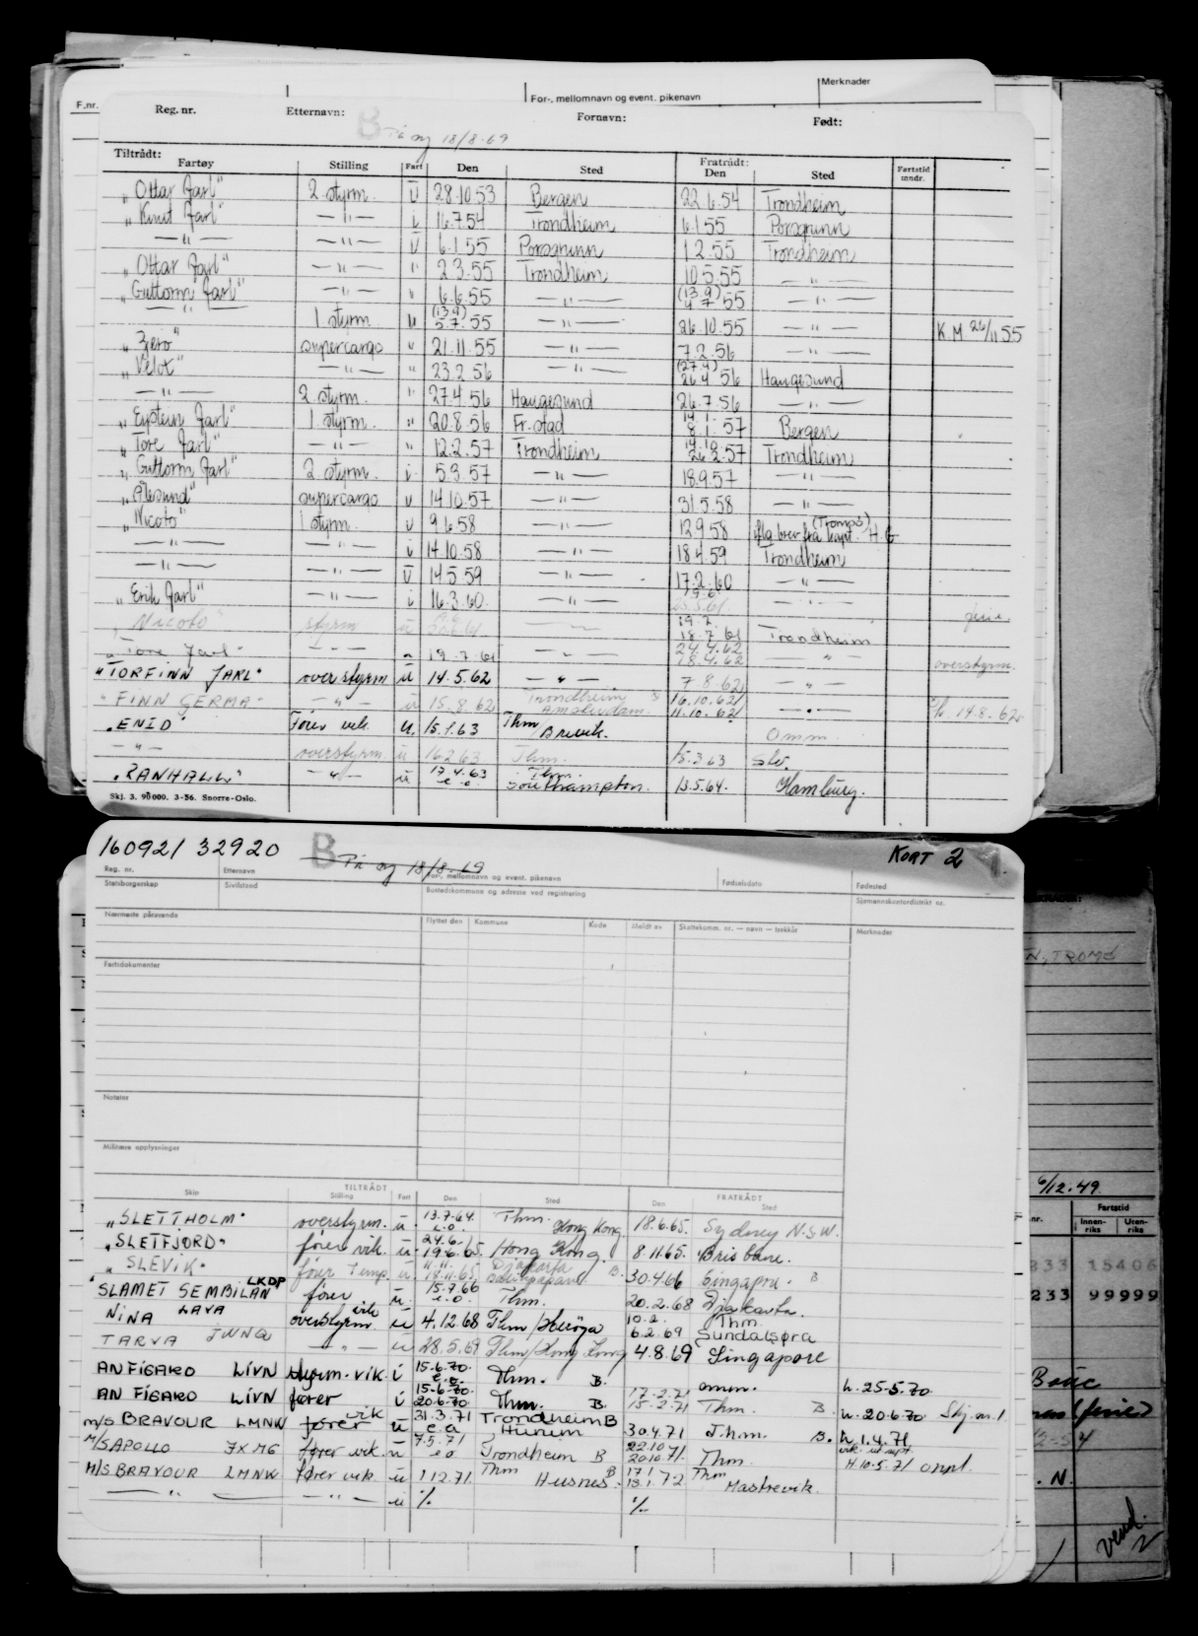 Merknader
F.nr. For-, mellomnavn og event. pikenavn
Reg. nr. Etternavn: Fornavn: Født:
B På ny 18/8-69
Tiltrådt: Fratrådt:
Fartøy Stilling Fart Den Sted Den Sted Fartstid mndr.
"Ottar Jarl" 2 styrm. U 28.10.53 Bergen 22.6.54 Trondheim
"Knut Jarl" —"— i 16.7.54 Trondheim 6.1.55 Porsgrunn
—"— —"— U 6.1.55 Porsgrunn 1.2.55 Trondheim
"Ottar Jarl" —"— " 2.3.55 Trondheim 10.5.55 —"—
"Guttorm Jarl" —"— " 6.6.55 —"— (13.9) 4.7.55 —"—
—"— 1 styrm. u (13.9) 5.7.55 —"— 26.10.55 —"— K.M 26/11 55
"Zero" supercargo " 21.11.55 —"— 7.2.56 —"—
"Velox" —"— " 23.2.56 —"— (27.4) 26.4.56 Haugesund
—"— 2 styrm. " 27.4.56 Haugesund 26.7.56 —"—
"Eystein Jarl" 1 styrm. " 20.8.56 Fr.stad 8.1.57 Bergen
"Tore Jarl" —"— " 12.2.57 Trondheim 26.2.57 Trondheim
"Guttorm Jarl" 2 styrm. i 5.3.57 —"— 18.9.57 —"—
"Ålesund" supercargo u 14.10.57 —"— 31.5.58 —"—
"Nicoto" 1 styrm. u 9.6.58 —"— 12.9.58 (Tromsø) ifla brev fra kapt. H.G
—"— —"— i 14.10.58 —"— 18.4.59 Trondheim
—"— —"— U 14.5.59 —"— 17.2.60 —"—
"Erik Jarl" —"— i 16.3.60. —"— —"— ferie
"Nicoto" styrm u —"— 19.7. 18.7.61 Trondheim
"Tore Jarl" —"— " 19.7.61 —"— 24.4.62 18.4.62 —"— overstyrm.
"TORFINN JARL" overstyrm u 14.5.62 —"— 7.8.62 —"—
"FINN GERMA" —"— u 15.8.62 Trondheim Amsterdam. 16.10.62 11.10.62 —"— 14.8.62
"ENID" Fører vik. u. 15.1.63 Thm/Brevik. Omm.
—"— overstyrm. u 16.2.63 Thm. 15.3.63 Slv.
"RANHALL" —"— u 17.4.63 e.o. Thm. Southampton. 13.5.64. Hamburg.
Skj. 3. 90000. 3-56. Snorre-Oslo.
160921 32920 B På ny 18/8-69 KORT 2
Reg. nr. Etternavn For-, mellomnavn og event. pikenavn Fødselsdato Fødested
Statsborgerskap Sivilstand Bostedskommune og adresse ved registrering Sjømannskontordistrikt nr.
Nærmeste pårørende Flyttet den Kommune Kode Meldt av Skattekomm. nr. — navn — trekkår Merknader
N, TROMØ
Fartsdokumenter
Notater
Militære opplysninger
6/12.49
TILTRÅDT FRATRÅDT
Skip Stilling Fart Den Sted Den Sted
Fartstid
nr. Innenriks Utenriks
"SLETTHOLM" overstyrm. u. 13.7.64. e.o. Thm. Hong Kong 18.6.65. Sydney N.S.W.
"SLETFJORD" fører vik. u 24.6. 19.6.65. Hong Kong. 8.11.65. Brisbane.
"SLEVIK" fører temp. u. 11.11. 14.11.65 Djakarta B. 30.4.66 Singapre. B
333 15406
"SLAMET SEMBILAN" LKDP fører u. 15.9.66 e.o. Thm. 20.2.68 Djakarta
233 99999
NINA LAVA overstyrm vik u 4.12.68 Thm/Herøya 10.2. 6.2.69 Thm. Sundalsøra
TARVA JWNQ —"— u 28.5.69 Thm/Hong Kong 4.8.69 Singapore
AN FIGARO LIVN styrm. vik. i 15.6.70. e.o. Thm. B. omm. h. 25-5.70
AN FIGARO LIVN fører i 15.6.70. 20.6.70 Thm. B. 17.2.71 15.2.71 Thm. B h. 20.6.70 Skj.nr.1
M/S BRAVOUR LMNW fører vik u 31.3.71 e.a TrondheimB Hurum 30.4.71 Thm. B. h. 1.4.71
M/S APOLLO JXMG fører vik. u 7.5.71 e.o Trondheim B 22.10 20.10.71. Thm. H. 10.5.71 oppl.
M/S BRAVOUR LMNW fører vik u 1.12.71. Thm Husnes B 17.1 13.1.72 Thm Mastrevik.
—"— —"— u ·/· ·/·
. N.
vend.